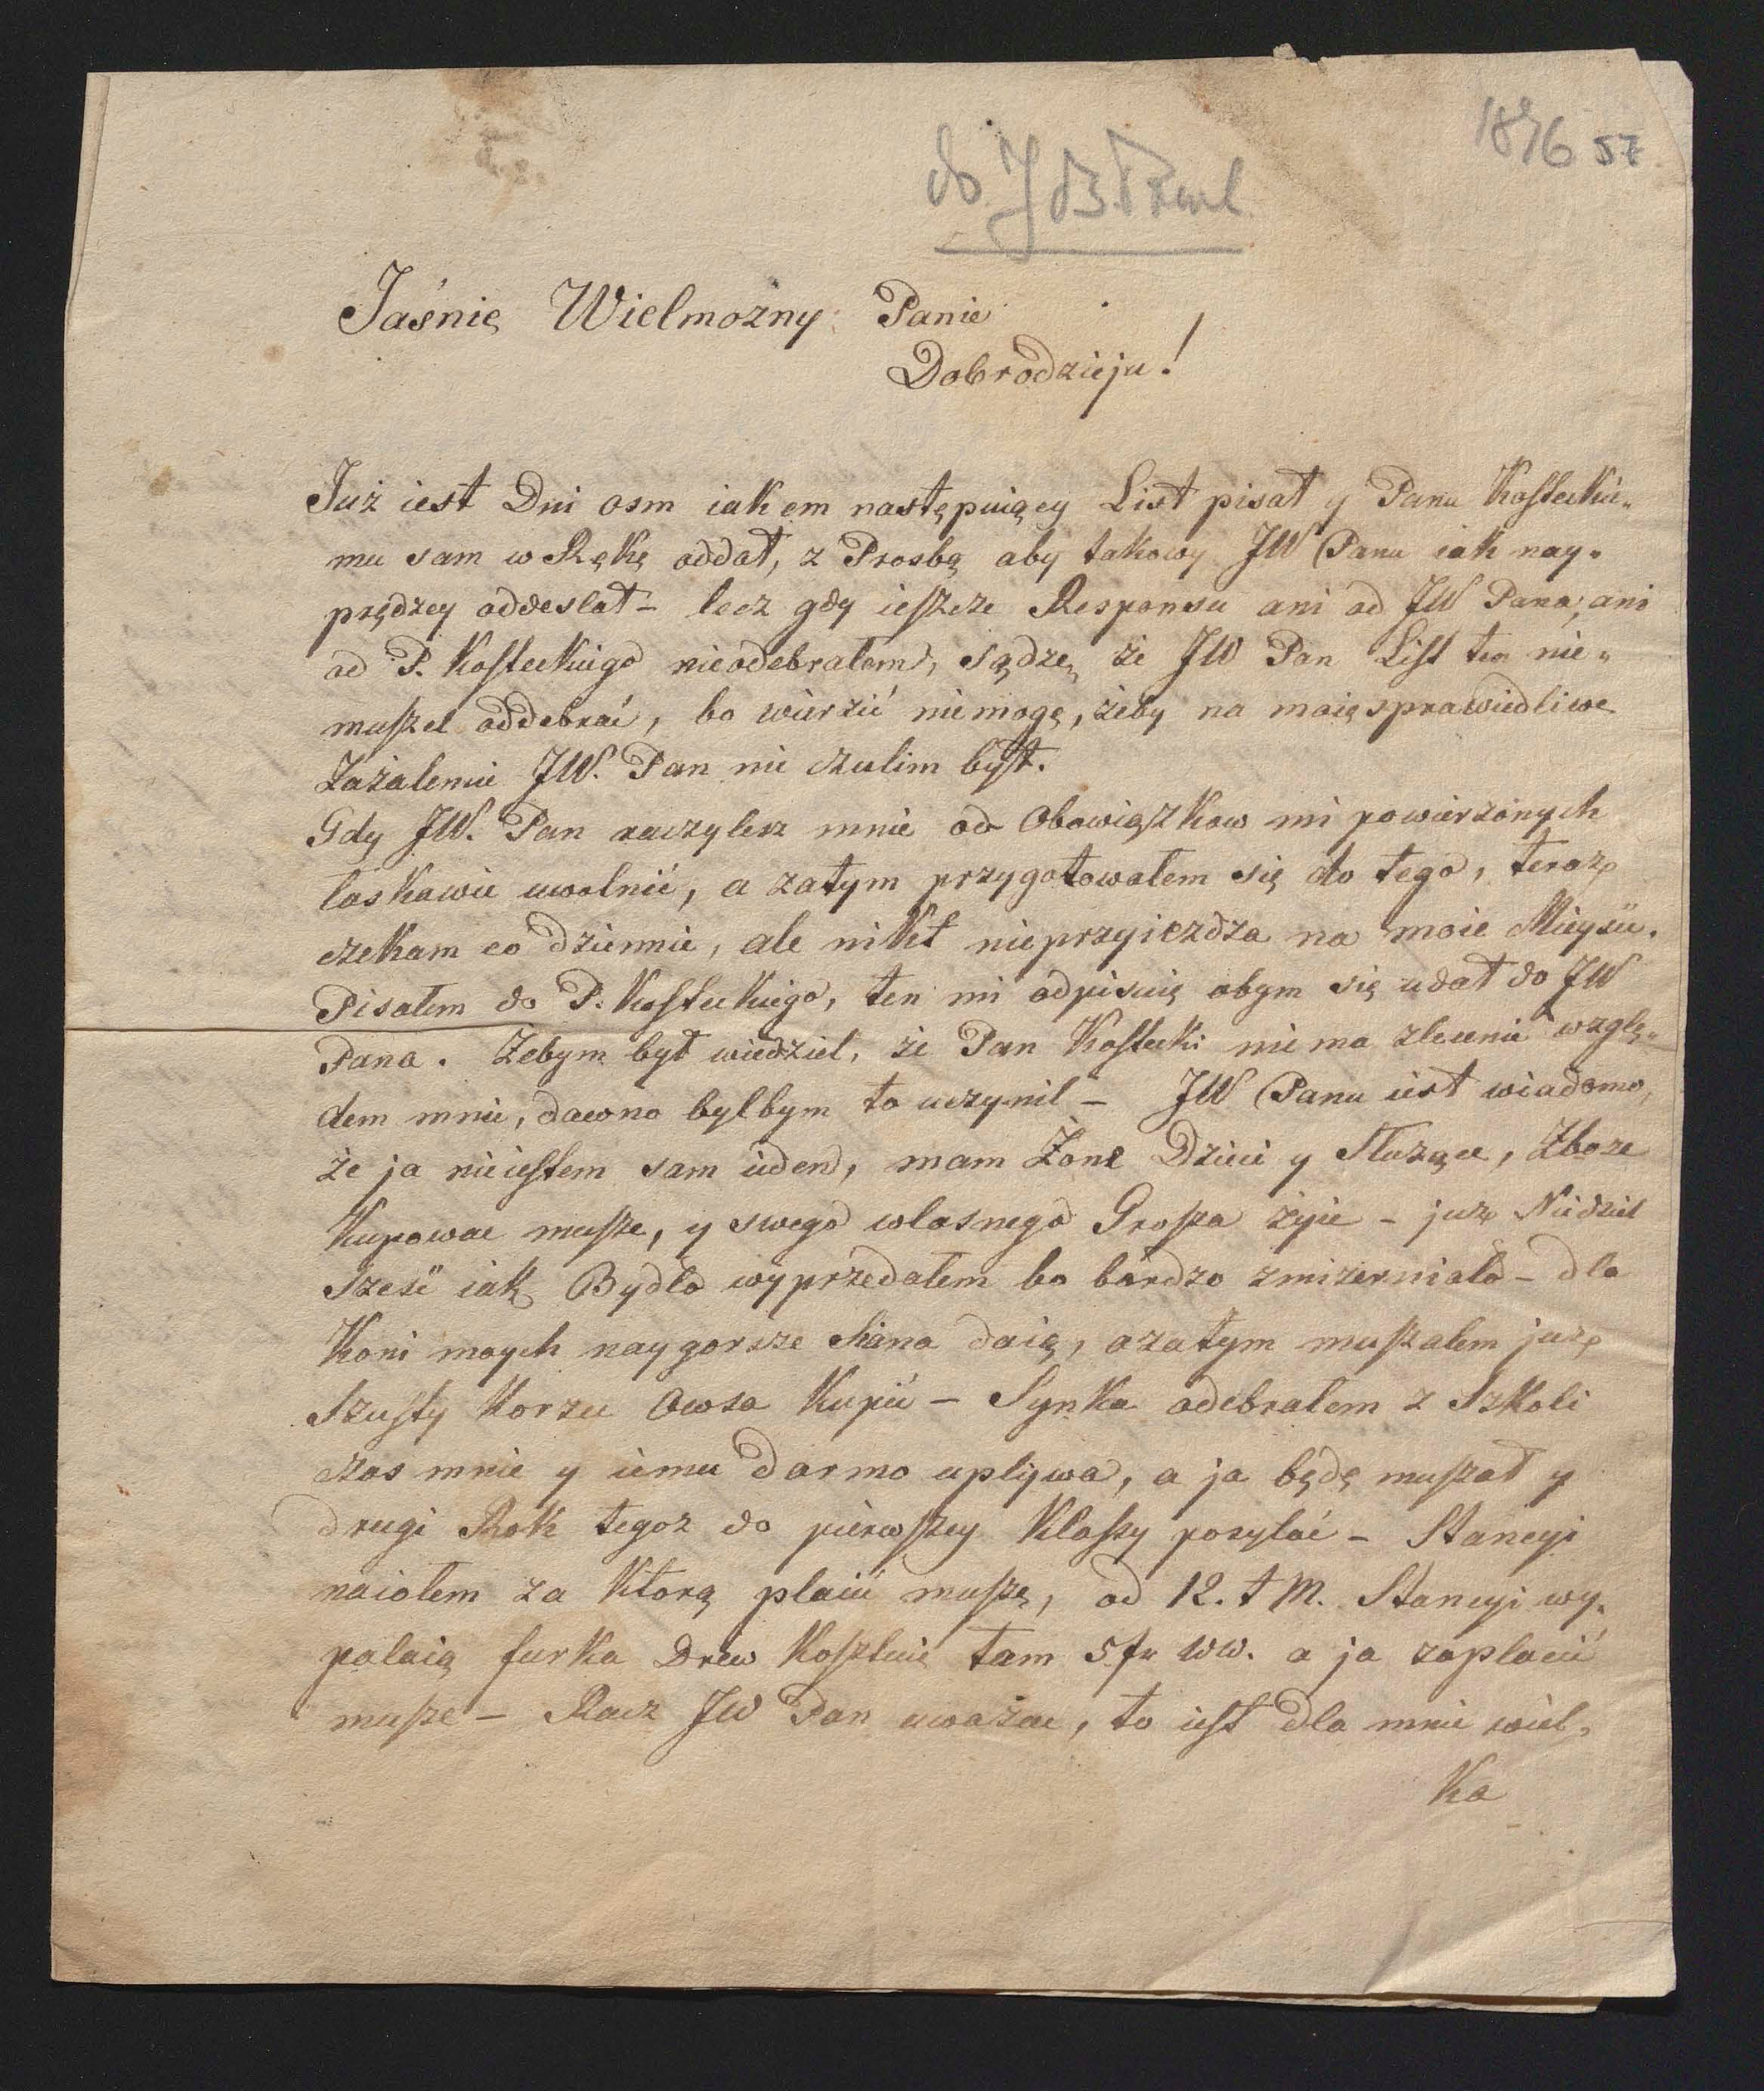 57
do J
Jaśnie Wielmożny Panie
Dobrodzieju!
Już iest Dni osm iakem następuiący List pisał y Panu Kosteckie„
mu sam w Rękę oddał, z Prosbą aby takowy JW Panu iak nay„
prędzey oddeslał – lecz gdy ieszcze Responsu ani od JW Pana, ani
od P. Kosteckiego nieodebrałem, sądzę, że JW Pan List ten nie„
muszel oddebrać, bo wierzić niemogę, żeby na moię sprawiedliwe
Zażalenie JW. Pan nie czulim był.
Gdy JW. Pan raczylesz mnie od Obowiązkow mi powierzonych
laskawie uwolnić, a zatym przygotowałem się do tego, teraz
czekam co dziennie, ale nikt nieprzyiezdza na moie Mieysce.
Pisałem do P. Kosteckiego, ten mi odpisuię abym się udał do JW
Pana. Żebym był wiedziel, że Pan Kostecki nie ma zlecenie wzglę„
dem mnie, dawno bylbym to uczynil – JW Panu iest wiadomo,
że ja nieiestem sam ieden, mam Żone Dzieci y Służące, Zboże
Kupowac musze, y swego wlasnego Grosza żyie – już Niedziel
sześć iak Bydło wyprzedałem bo bardzo zmizerniało – dla
Koni moych naygorsze Siana daią, azatym muszałem już
Szusty Korzec Owsa Kupić – Synka odebralem z Szkoli
czas mnie y iemu darmo uplywa, a ja będę muszał y
drugi Rok tegoz do pierwszey Klassy posyłać – Stancyi
naiołem za Ktorą placić muszę, od 12. t M. Stancyi wy„
palaią furka Drew Kosztuię tam 5 fr WW. a ja zaplacić
musze – Racz JW Pan uważac, to iest dla mnie wiel„
Ka